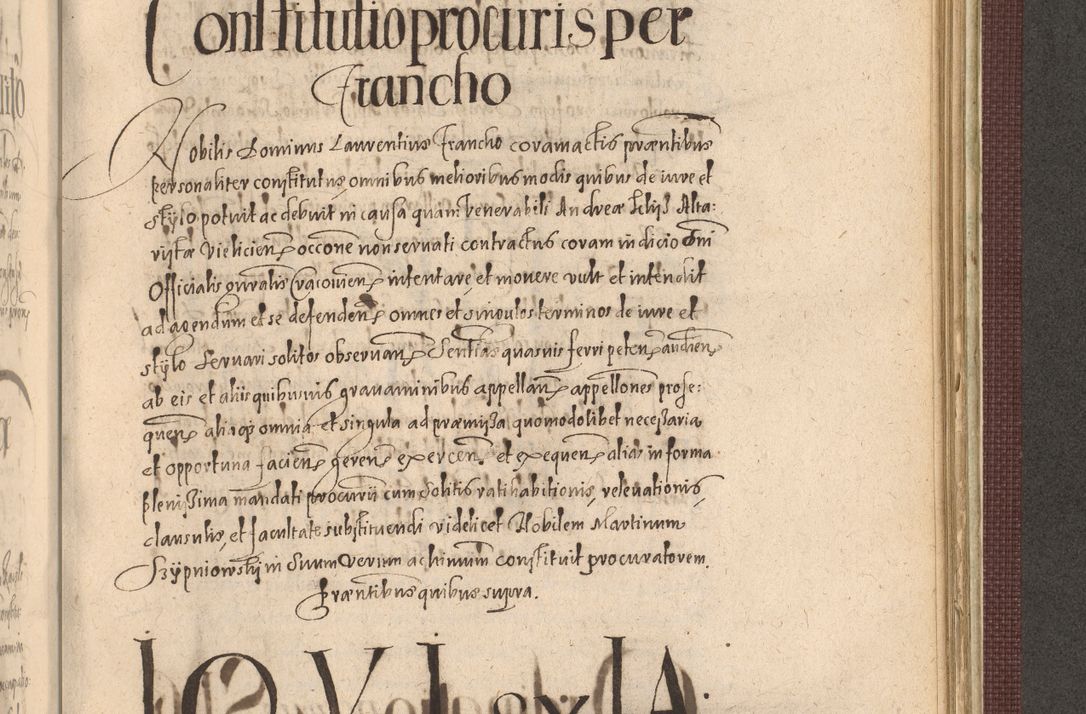 Constitutio procuris per
Francho
Nobilis Dominus Laurentius Francho coram actis præntibus
personaliter constitutus, omnibus melioribus modis quibus de iure et
stylo potuit ac debuit in causa quam Venerabili Andreæ Alta:
ristæ Vielicien, occone non servati contractus coram indicio Dni
Officialis gnralis Cracovien, intentare et movere vult et intendit
ad agendum et se defenden, omnes et singulos terminos de iure et
stylo servari solitos observan, Sentias quasvis ferri peten, audien,
ab eis et aliis quibusvis gravaminibus appellan, appellones prose:
quen, aliaqz omnia et singula ad præmissa quomodolibet necessaria
et opportuna facien, geren, exercen, et exequen, alias in forma
plenissima mandati procurii cum solitis ratihabitionis, relevationis,
clausulis, et facultate substituendi videlicet Nobilem Martinum
Szypniowski in Suum Verum ac nimium constituit procuratorem.
Præntibus quibus supra.